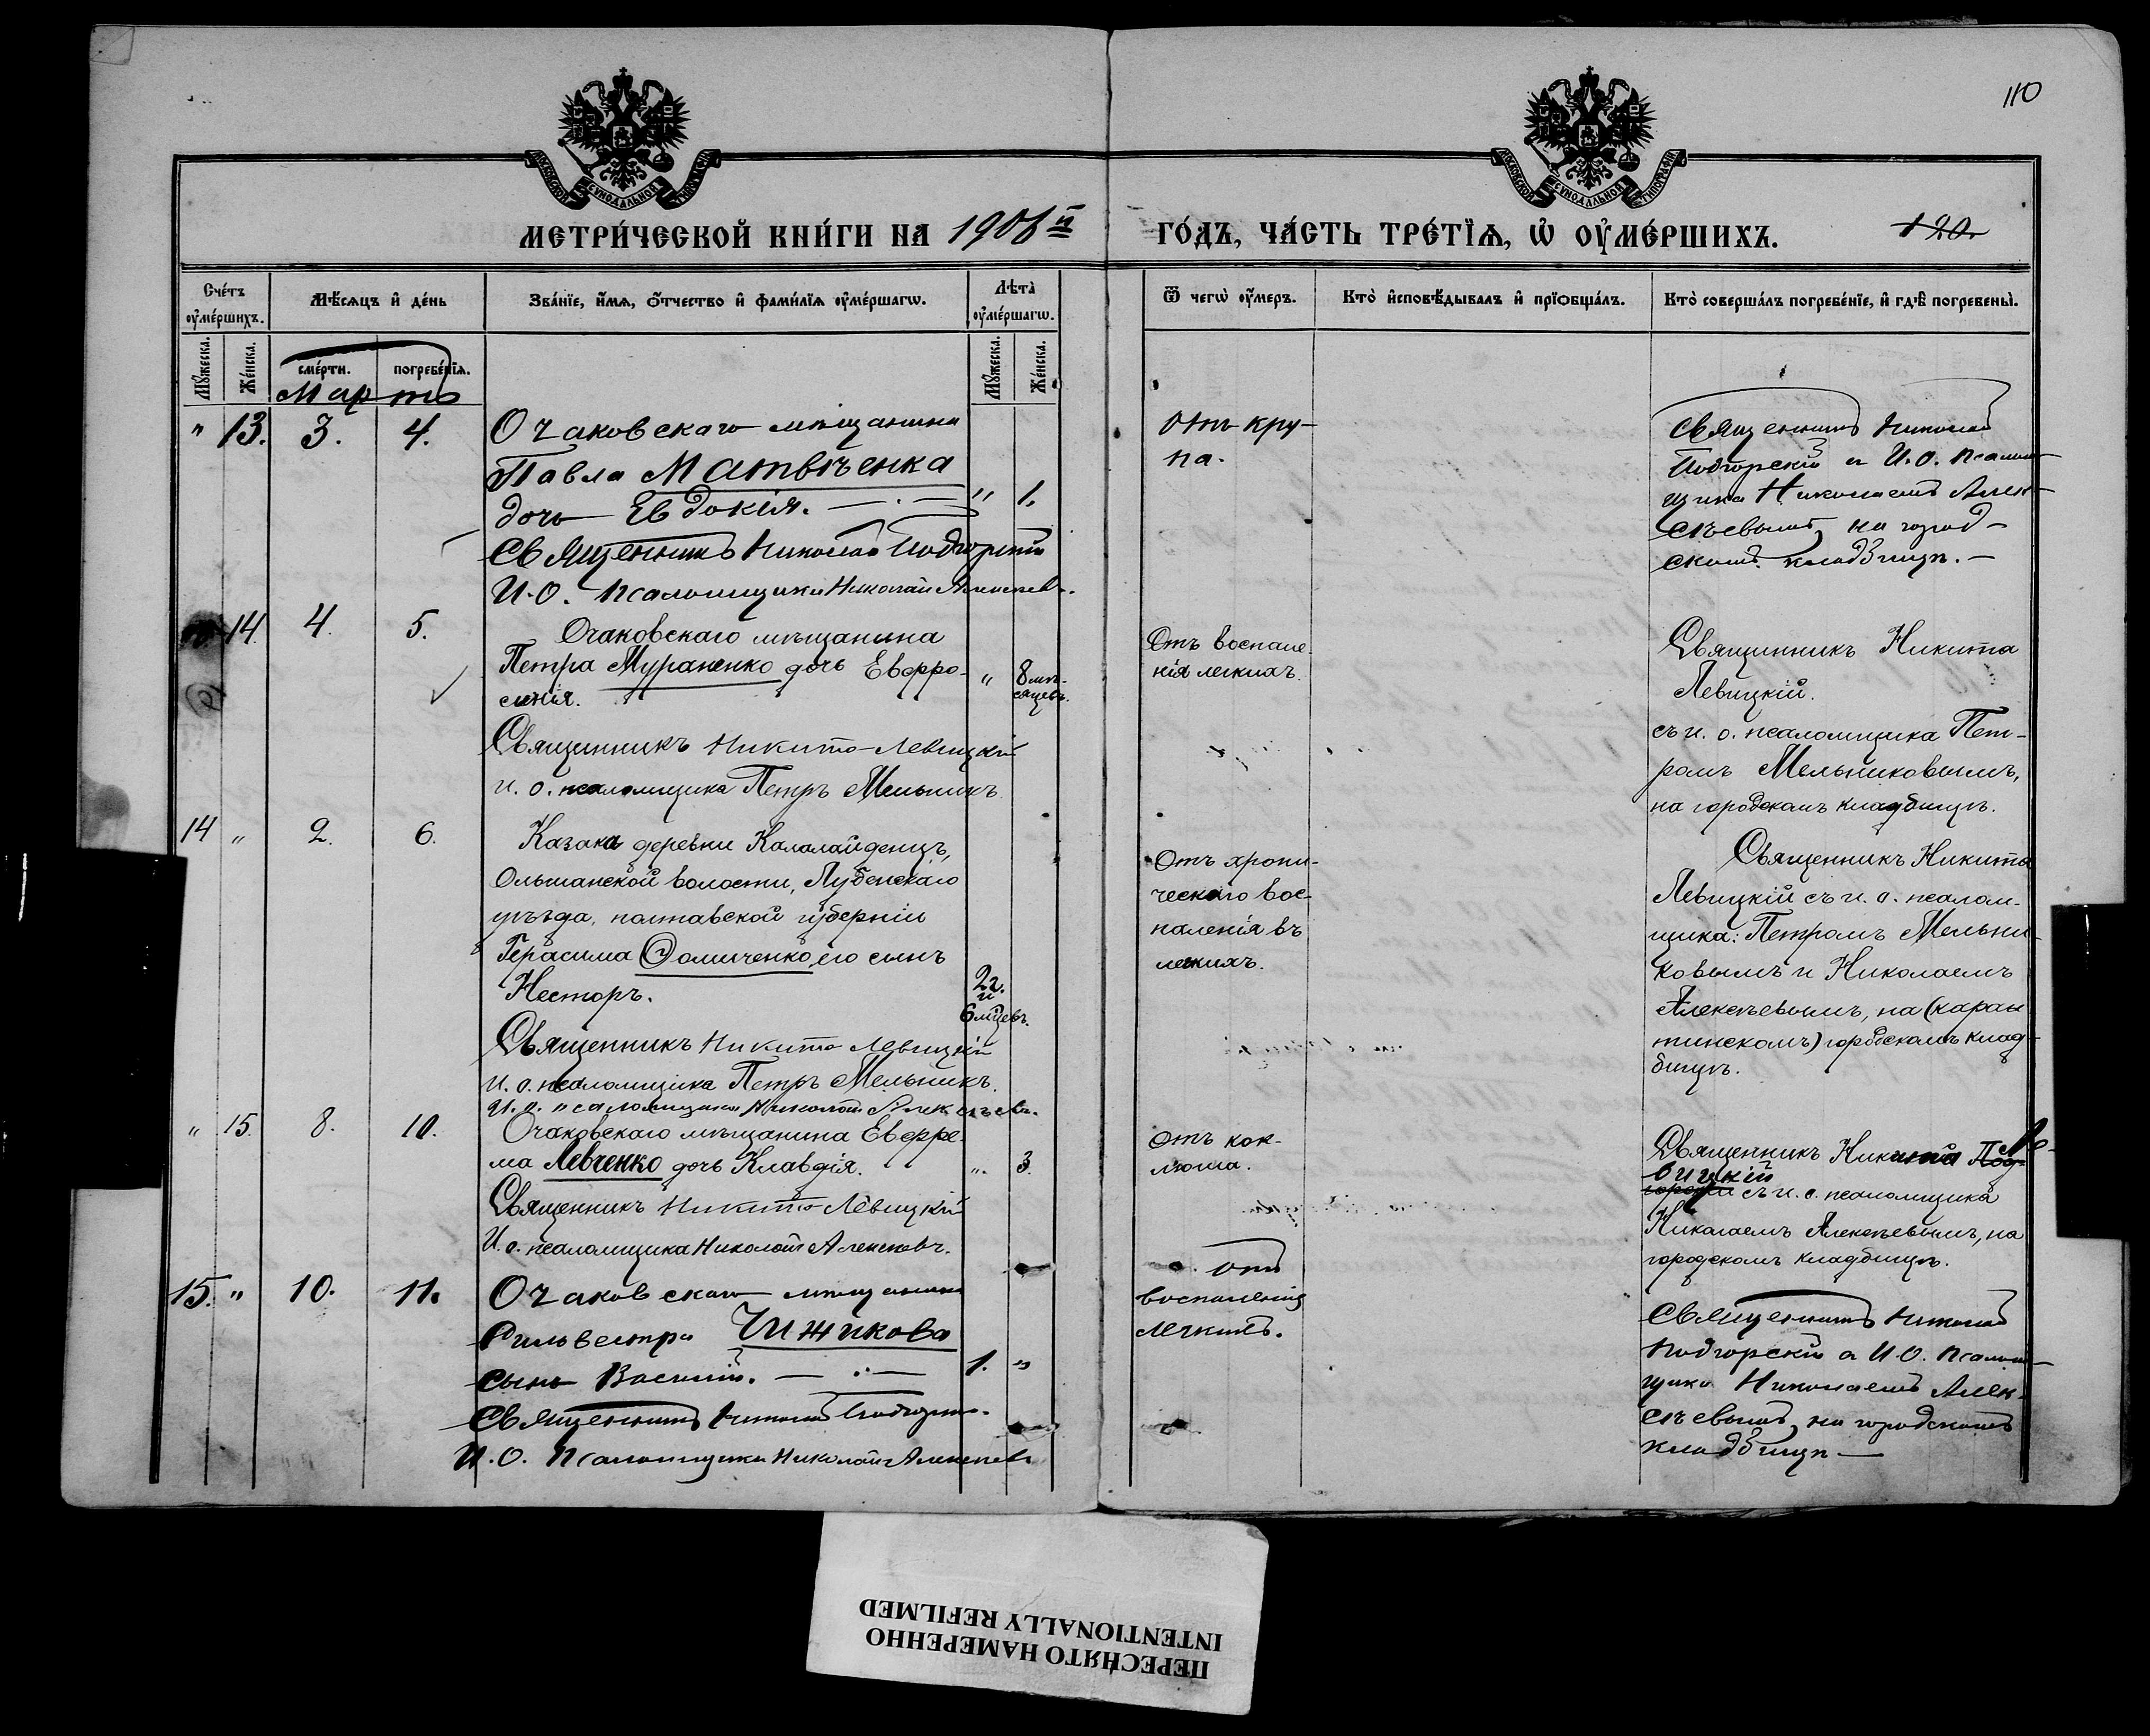 110
МОСКОВСКОЙ СѴНОДАЛЬНОЙ ТИПОГРАФІИ
МОСКОВСКОЙ СѴНОДАЛЬНОЙ ТИПОГРАФІИ
МЕТРИ́ЧЕСКОЙ КНИ́ГИ НА 1906й
ГО́ДЪ, ЧА́СТЬ ТРЕ́ТЇѦ, Ѡ҆ ОУ҆МЕ́РШИХЪ.
120.
Сче́тъ оу҆ме́ршихъ.
Мѣ́сѧцъ и҆ де́нь
Зва́нїе, и҆́мѧ, ѻ҆́тчество и҆ фами́лїѧ оу҆ме́ршагѡ.
Лѣ́та оу҆ме́ршагѡ.
Ѿ чегѡ̀ оу҆́меръ.
Кто̀ и҆сповѣ́дывалъ и҆ прїѻбща́лъ.
Кто̀ соверша́лъ погребе́нїе, и҆ гдѣ̀ погребены̀.
Мꙋ́жеска.
Же́нска.
сме́рти.
погребе́нїѧ.
Мꙋ́жеска.
Же́нска.
Мартъ
" 13. 3. 4.
Очаковскаго мѣщанина
Павла Матвѣенка
дочь Евдокія. " 1.
Священникъ Николай Подгорскій
И.О. Псаломщика Николай Алексѣев.
отъ кру-
па.
Священникъ Николай
Подгорскій а И.О. Псалом-
щика Николаемъ Алек-
сѣевымъ, на город-
скомъ кладбищѣ.
14. 4. 5.
Очаковскаго мѣщанина
Петра Мураненко дочь Евфро-
синія. " 8 мѣ-
сяцевъ.
Священникъ Никита Левицкій
и. о. псаломщика Петръ Мельникъ
Отъ воспале-
нія легкихъ.
Священникъ Никита
Левицкій.
съ и. о. псаломщика Пет-
ромъ Мельниковымъ,
на городскомъ кладбищѣ.
14 " 2. 6.
Казака деревни Калалайденцъ,
Ольшанской волости, Лубенскаго
уѣзда, полтавской губерніи
Герасима Ѳомиченко, его сынъ
Несторъ. 2 г.
и
6 мѣцевъ.
Священникъ Никита Левицкій
И. о. псаломщика Петръ Мельникъ.
И. о. псаломщика Николай Алексѣевъ.
Отъ хрони-
ческаго вос-
паленія въ
легкихъ.
Священникъ Никита
Левицкій съ и. о. псалом-
щика: Петромъ Мельни-
ковымъ и Николаемъ
Алексѣевымъ, на (каран
тинскомъ) городскомъ клад-
бищѣ.
" 15. 8. 10.
Очаковскаго мѣщанина Евфре-
ма Левченко дочь Клавдія. " 3.
Священникъ Никита Левицкій
И. о. псаломщика Николай Алексѣевъ.
Отъ кок-
люша.
Священникъ Никита Под Ле-
вицкій
горскій съ и. о. псаломщика
Николаемъ Алексѣевымъ, на
городскомъ кладбищѣ.
15. " 10. 11.
Очаковскаго мѣщанина
Сильвестра Чижикова
сынъ Василій. 1. "
Священникъ Николай Подгорскій.
И.О. Псаломщика Николай Алексѣевъ
отъ
воспаленія
легкихъ.
Священникъ Николай
Подгорскій а И.О. Псалом-
щика Николаемъ Алек-
сѣевымъ, на городскомъ
кладбищѣ
ПЕРЕСНЯТО НАМЕРЕННО
INTENTIONALLY REFILMED